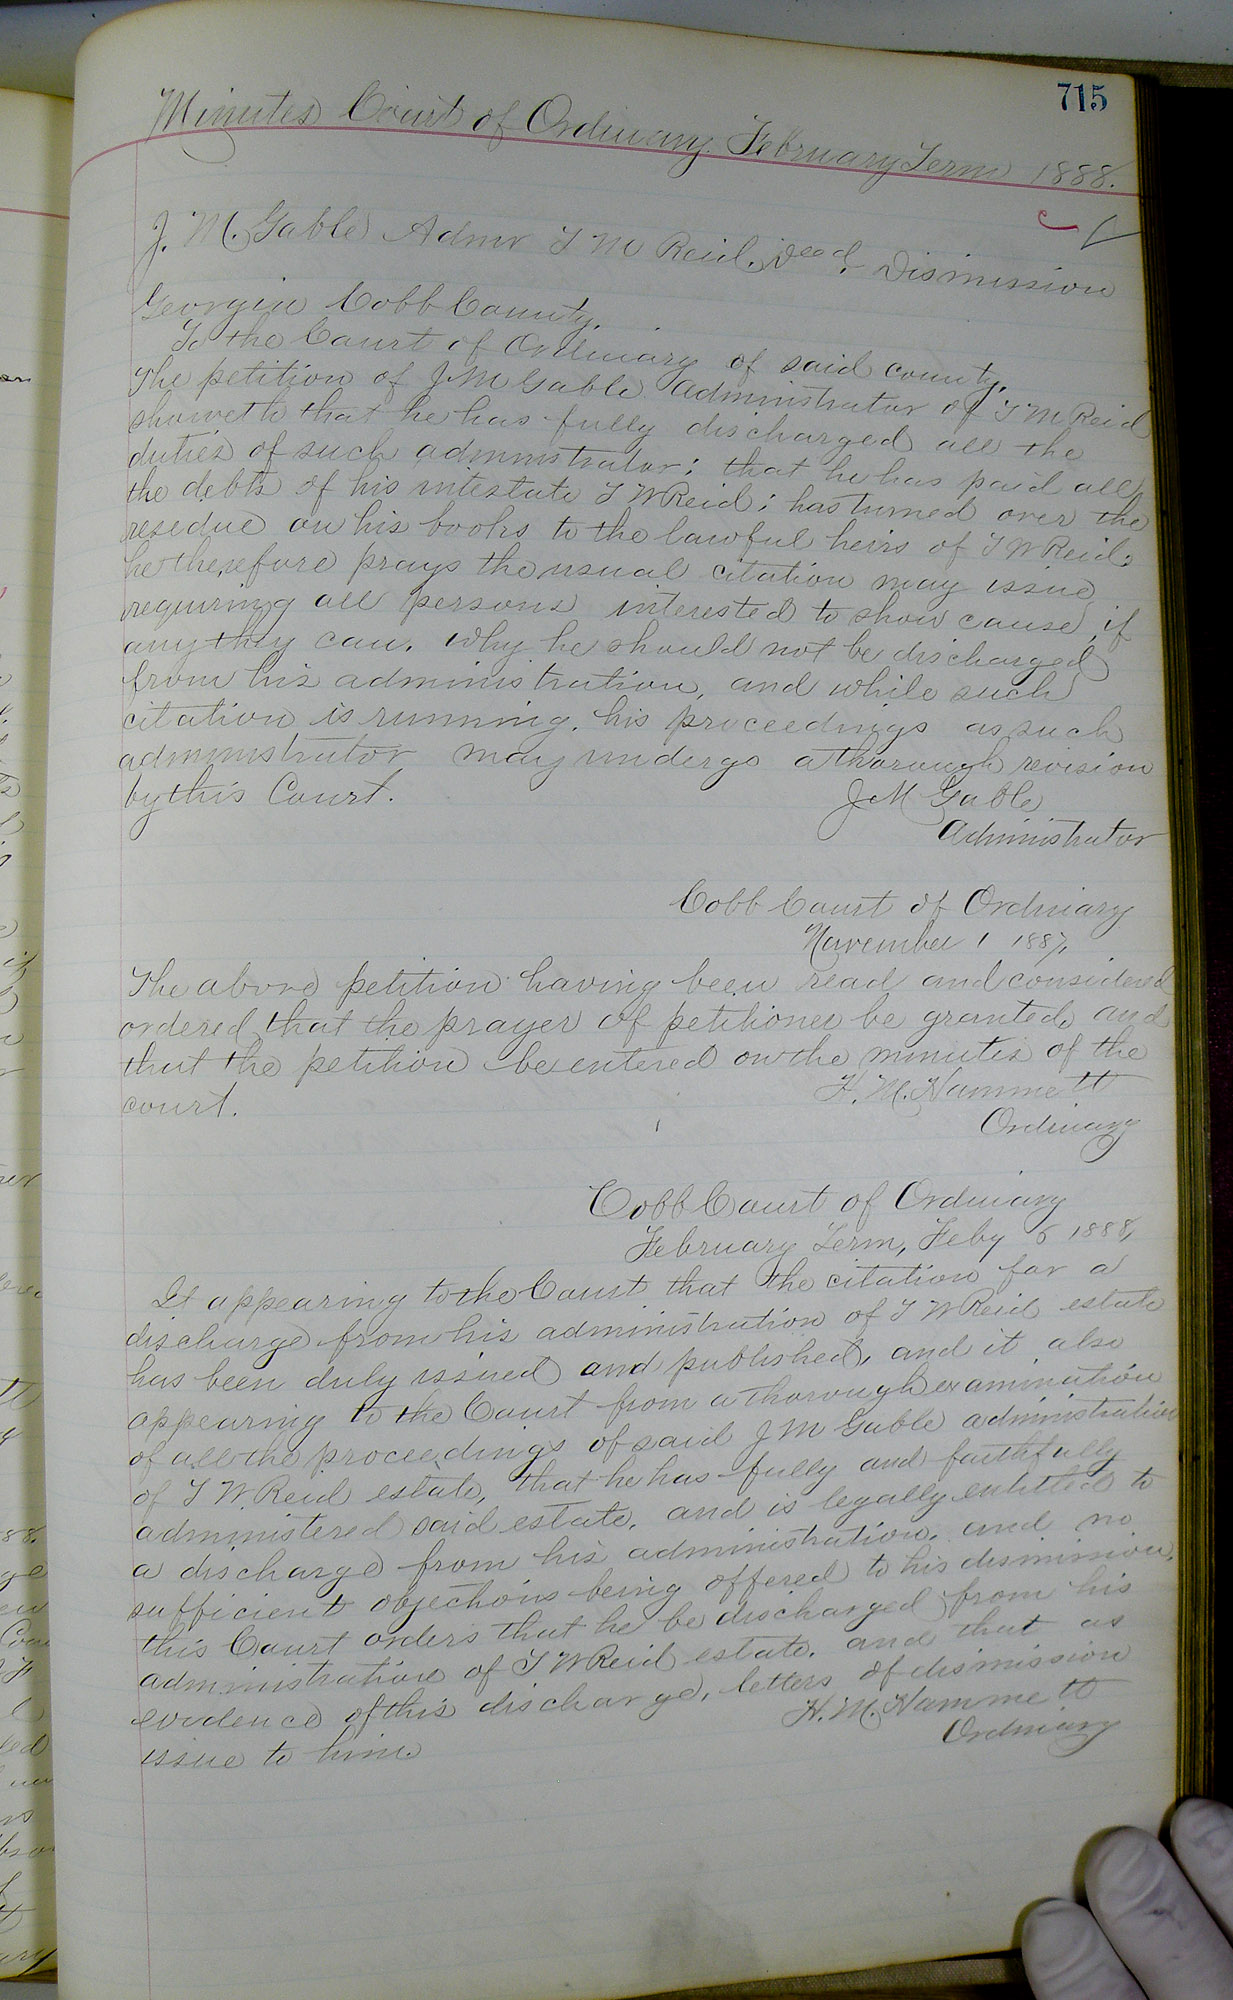 715
Minutes Court of Ordinary February Term 1888.
J. M. Gable Admr T M Reid, Decd. Dismission
Georgia Cobb County.
To the Court of Ordinary of said county.
The petition of J M Gable Administrator of T M Reid
showeth that he has fully discharged all the
duties of such administrator; that he has paid all
the debts of his intestate T W Reid; has turned over the
resedue on his books to the lawful heirs of T W Reid.
he therefore prays the usual citation may issue
requiring all persons interested to show cause, if
any they can. Why he should not be discharged
from his administration, and while such
citation is running, his proceedings as such
administrator may undergo a thorough revision
by this Court.
J M Gable
Administrator
Cobb Court of Ordinary
November 1 1887,
The above petition having been read and considered
ordered that the prayer of petitioner be granted, and
that the petition be entered on the minutes of the
court.
H. M. Hammett
Ordinary
Cobb Court of Ordinary
February Term, Feby 6 1888,
It appearing to the Court that the citation for a
discharge from his administration of T W Reid estate
has been duly issued and published, and it also
appearing to the Court from a thorough examination
of all the proceedings of said J M Gable administration
of T W. Reid estate, that he has fully and faithfully
administered said estate, and is legally entitled to
a discharge from his administration. and no
sufficient objections being offered to his dismission,
this Court orders that he be discharged from his
administration of T W Reid estate. and that as
evidence of this discharge, letters of dismission
issue to him.
H. M. Hammett
Ordinary